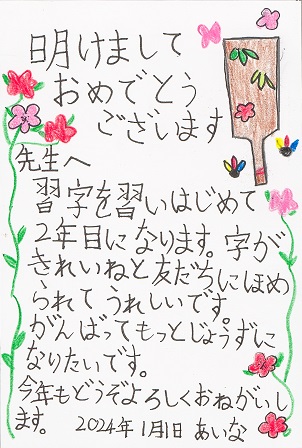 明けまして
おめでとう
ございます
先生へ
習字を習いはじめて
2年目になります。字が
きれいねと友だちにほめ
られてうれしいです。
がんばってもっとじょうずに
なりたいです。
今年もどうぞよろしくおねがいし
ます。 2024年1月1日 あいな